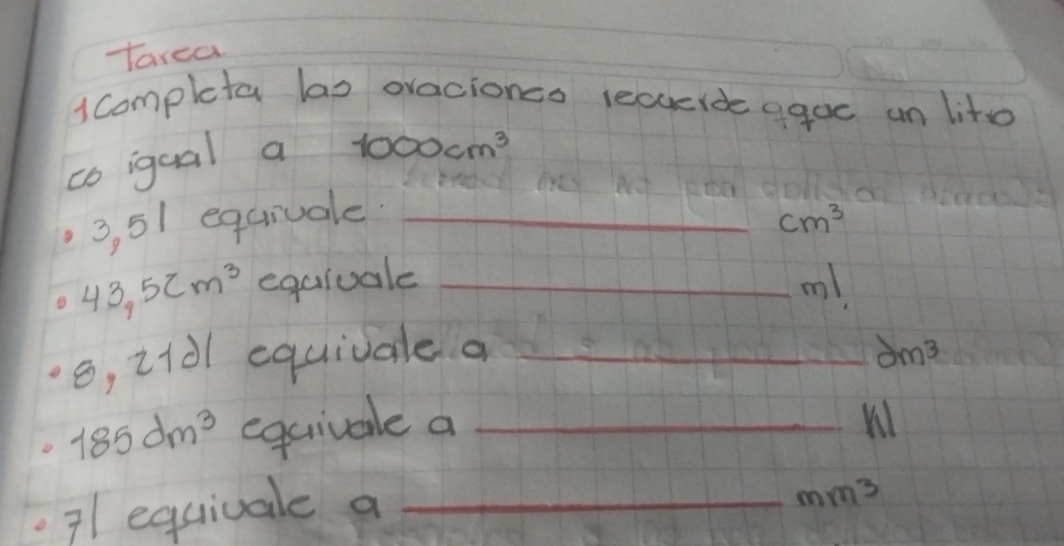 Tarea
1 Completa las oraciones recuerde qque un litro
es igual a 1000cm³
• 3,5l equivale. ______ cm³
• 43,52m³ equivale ______ ml.
• 8,21dl equivale a ______ dm³
• 185dm³ equivale a ______ Kl
• 7l equivale a ______ mm³